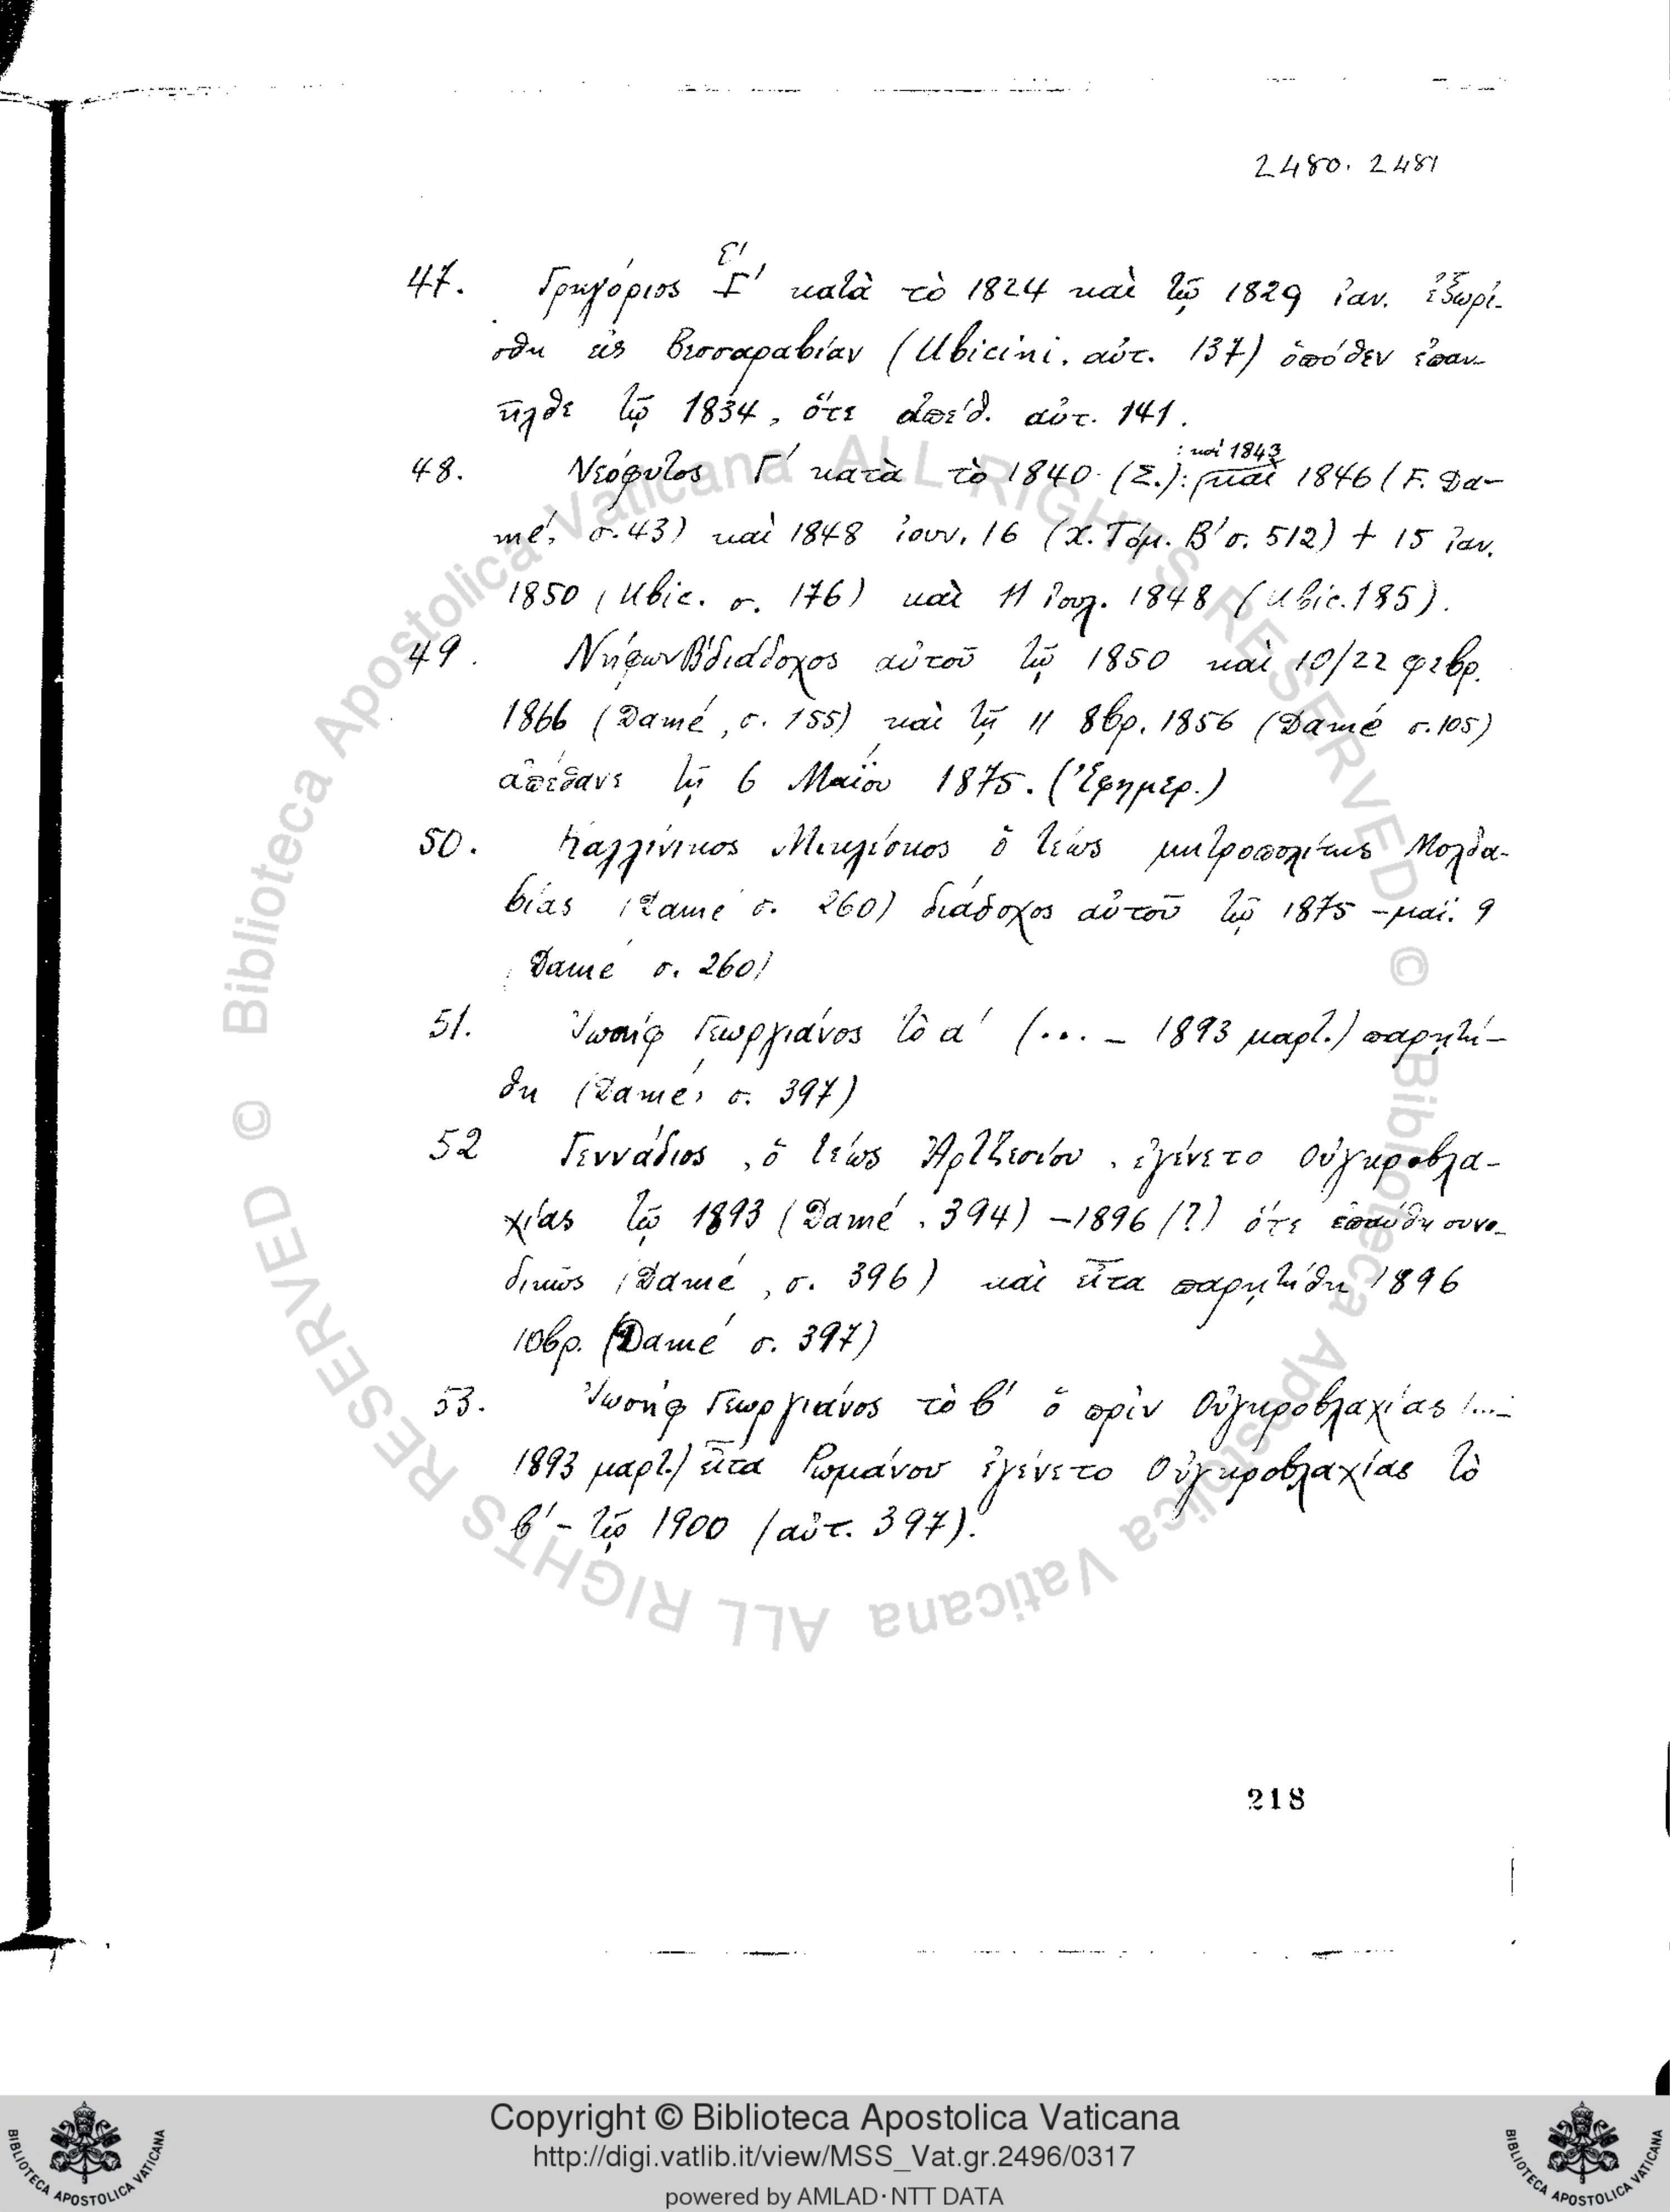 2480. 2481
Ε'
47. Γρηγόριος Γ' κατὰ τὸ 1824 καὶ τῷ 1829 ἰαν. ἐξωρί-
σθη εἰς Βεσσαραβίαν (Ubicini. αὐτ. 137) ὁπόθεν ἐπαν-
ῆλθε τῷ 1834, ὅτε ἀπέθ. αὐτ. 141.
: καὶ 1843
48. Νεόφυτος Γ' κατὰ τὸ 1840 (Σ.): καὶ 1846 (F. Da-
mé, σ. 43) καὶ 1848 ἰουν. 16 (Χ. Τόμ. Β' σ. 512) + 15 ἰαν.
1850 (Ubic. σ. 176) καὶ 11 ἰουλ. 1848 (Ubic. 185).
49. Νήφων Β' διάδοχος αὐτοῦ τῷ 1850 καὶ 10/22 φεβρ.
1866 (Damé, σ. 155) καὶ τῇ 11 8βρ. 1856 (Damé σ. 105)
ἀπέθανε τῇ 6 Μαΐου 1875. (Ἐφημερ.)
50. Καλλίνικος Μικλέσκος ὁ τέως μητροπολίτης Μολδα-
βίας (Damé σ. 260) διάδοχος αὐτοῦ τῷ 1875 – μαΐ. 9
Damé σ. 260)
51. Ἰωσήφ Γεωργιάνος τὸ α' (... – 1893 μαρτ.) παρῃτή-
θη (Damé, σ. 397)
52 Γεννάδιος, ὁ τέως Ἀρτζεσίου, ἐγένετο Οὐγκροβλα-
χίας τῷ 1893 (Damé, 394) – 1896 (?) ὅτε ἐπαύθη συνο-
δικῶς (Damé, σ. 396) καὶ εἶτα παρῃτήθη 1896
10βρ. (Damé σ. 397)
53. Ἰωσήφ Γεωργιάνος τὸ β' ὁ πρὶν Οὐγκροβλαχίας (...–
1893 μαρτ.) εἶτα Ρωμάνου ἐγένετο Οὐγκροβλαχίας τὸ
β' – τῷ 1900 (αὐτ. 397).
218
© Biblioteca Apostolica Vaticana ALL RIGHTS RESERVED
© Biblioteca Apostolica Vaticana ALL RIGHTS RESERVED
BIBLIOTECA APOSTOLICA VATICANA
Copyright © Biblioteca Apostolica Vaticana
http://digi.vatlib.it/view/MSS_Vat.gr.2496/0317
powered by AMLAD·NTT DATA
BIBLIOTECA APOSTOLICA VATICANA